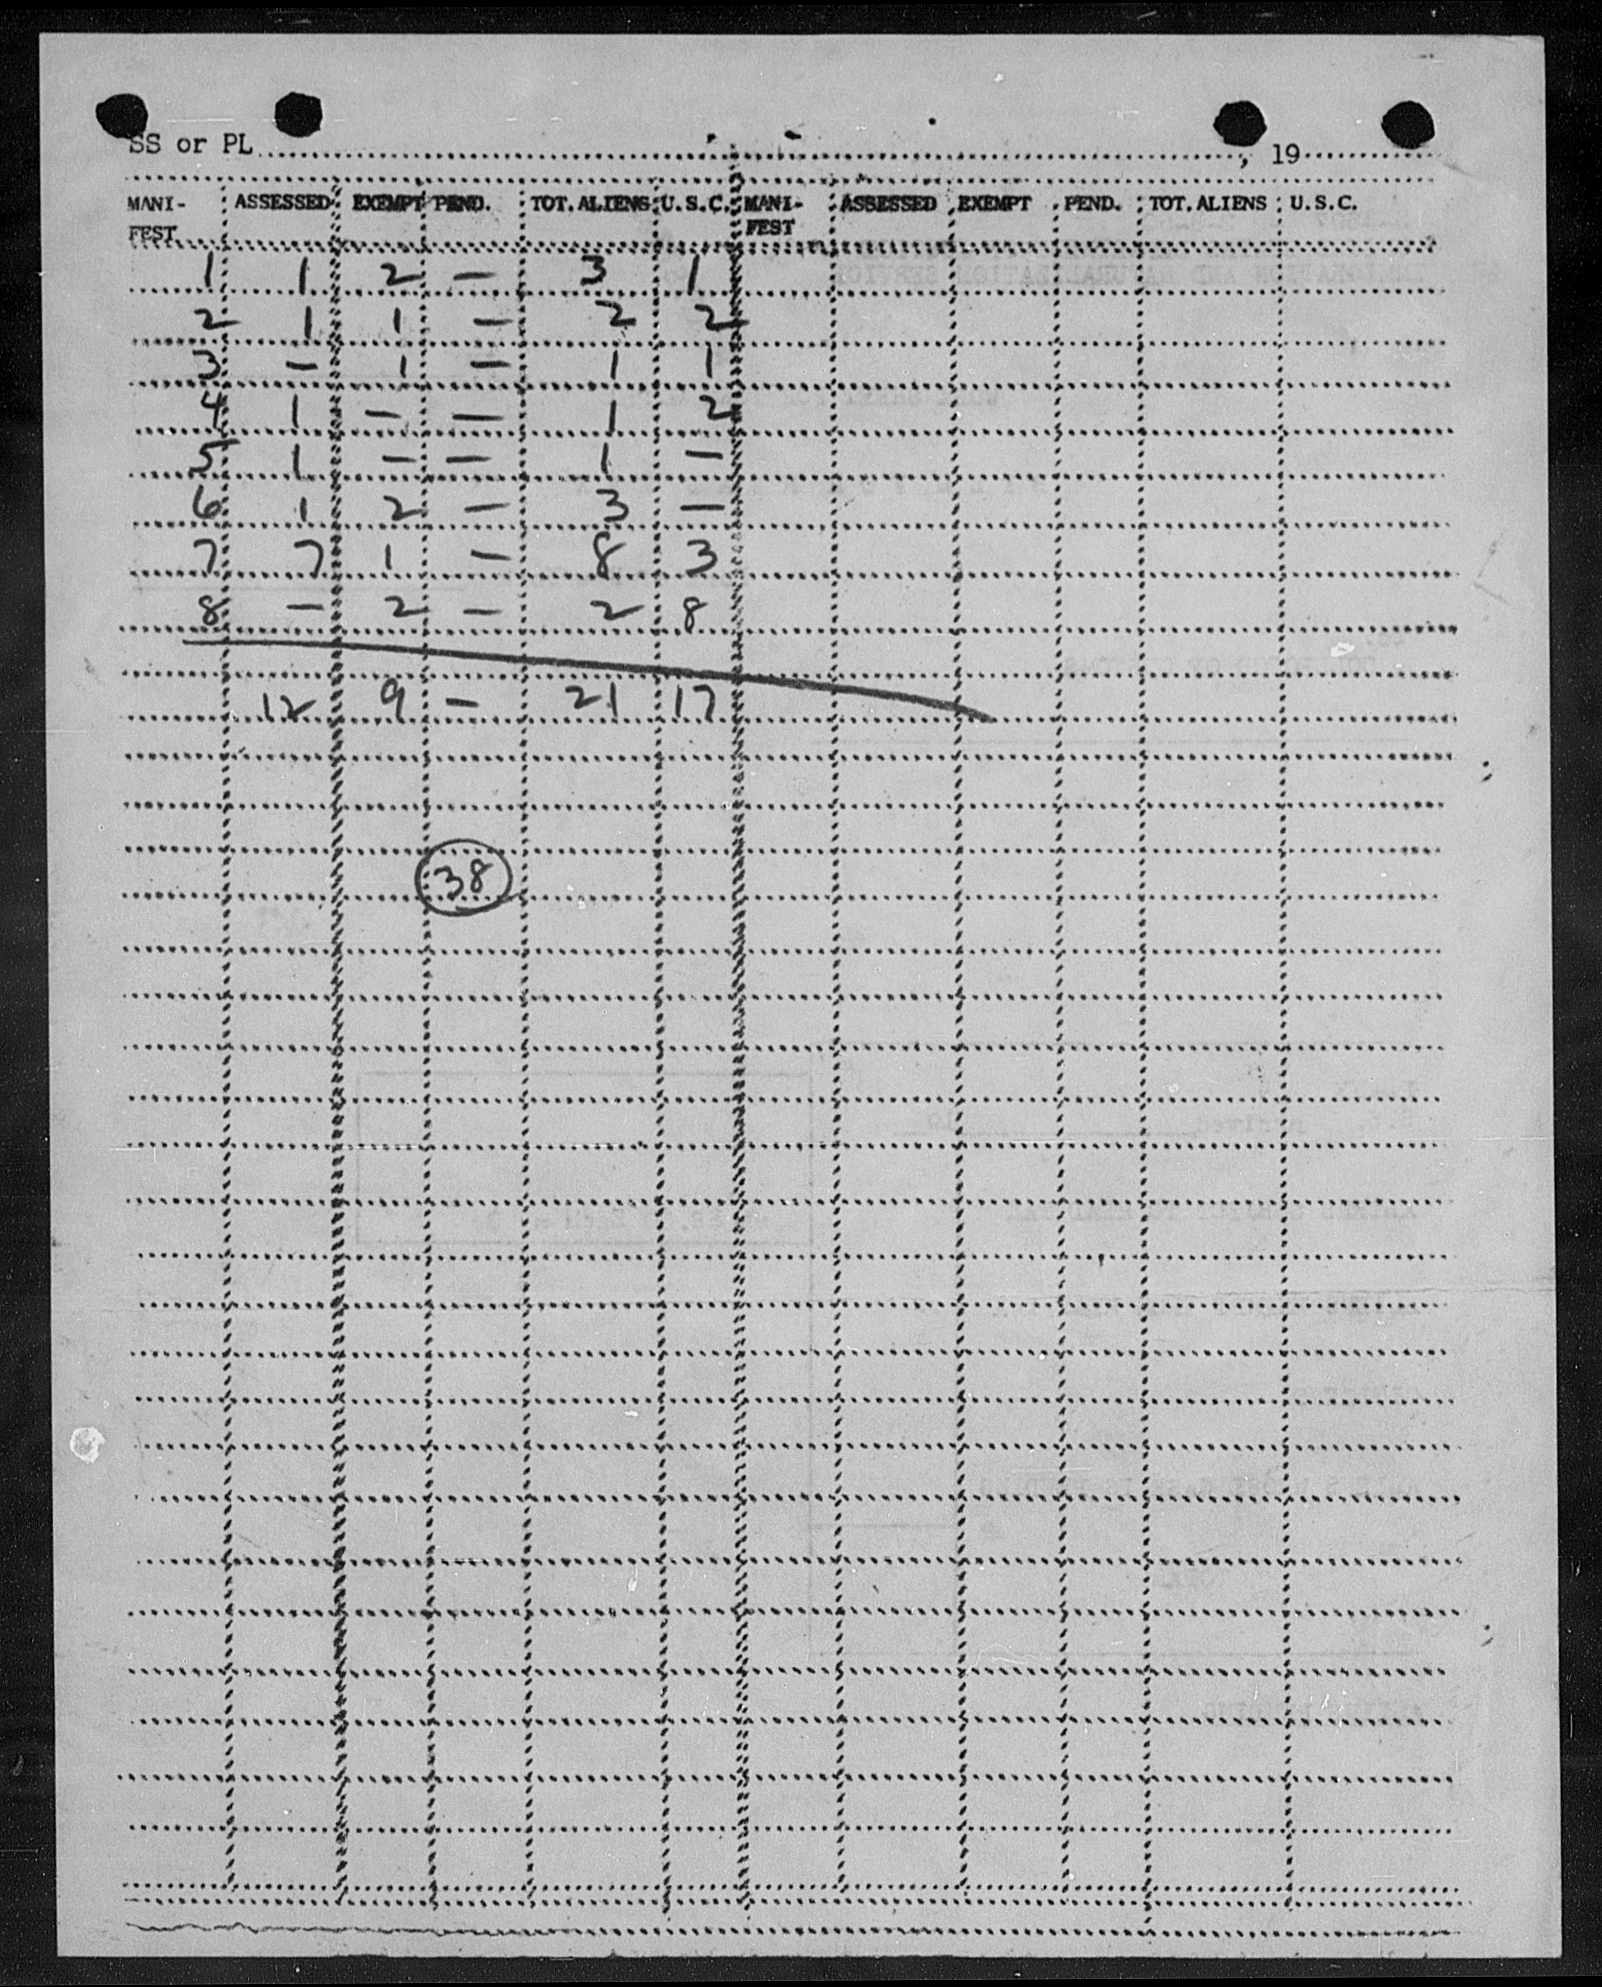 SS or PL , 19
MANI-FEST ASSESSED EXEMPT PEND. TOT. ALIENS U.S.C. MANI-FEST ASSESSED EXEMPT PEND. TOT. ALIENS U.S.C.
1 1 2 — 3 1
2 1 1 — 2 2
3 — 1 — 1 1
4 1 — — 1 2
5 1 — — 1 —
6 1 2 — 3 —
7 7 1 — 8 3
8 — 2 — 2 8
12 9 — 21 17
38